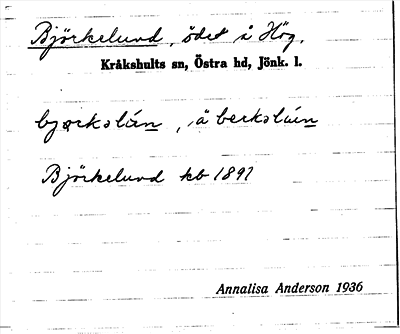 Björkelund, ödet i Hög.
Kråkshults sn, Östra hd, Jönk. l.
bjørkəlún, ä berkəlún
Björkelund kb 1891
Annalisa Anderson 1936